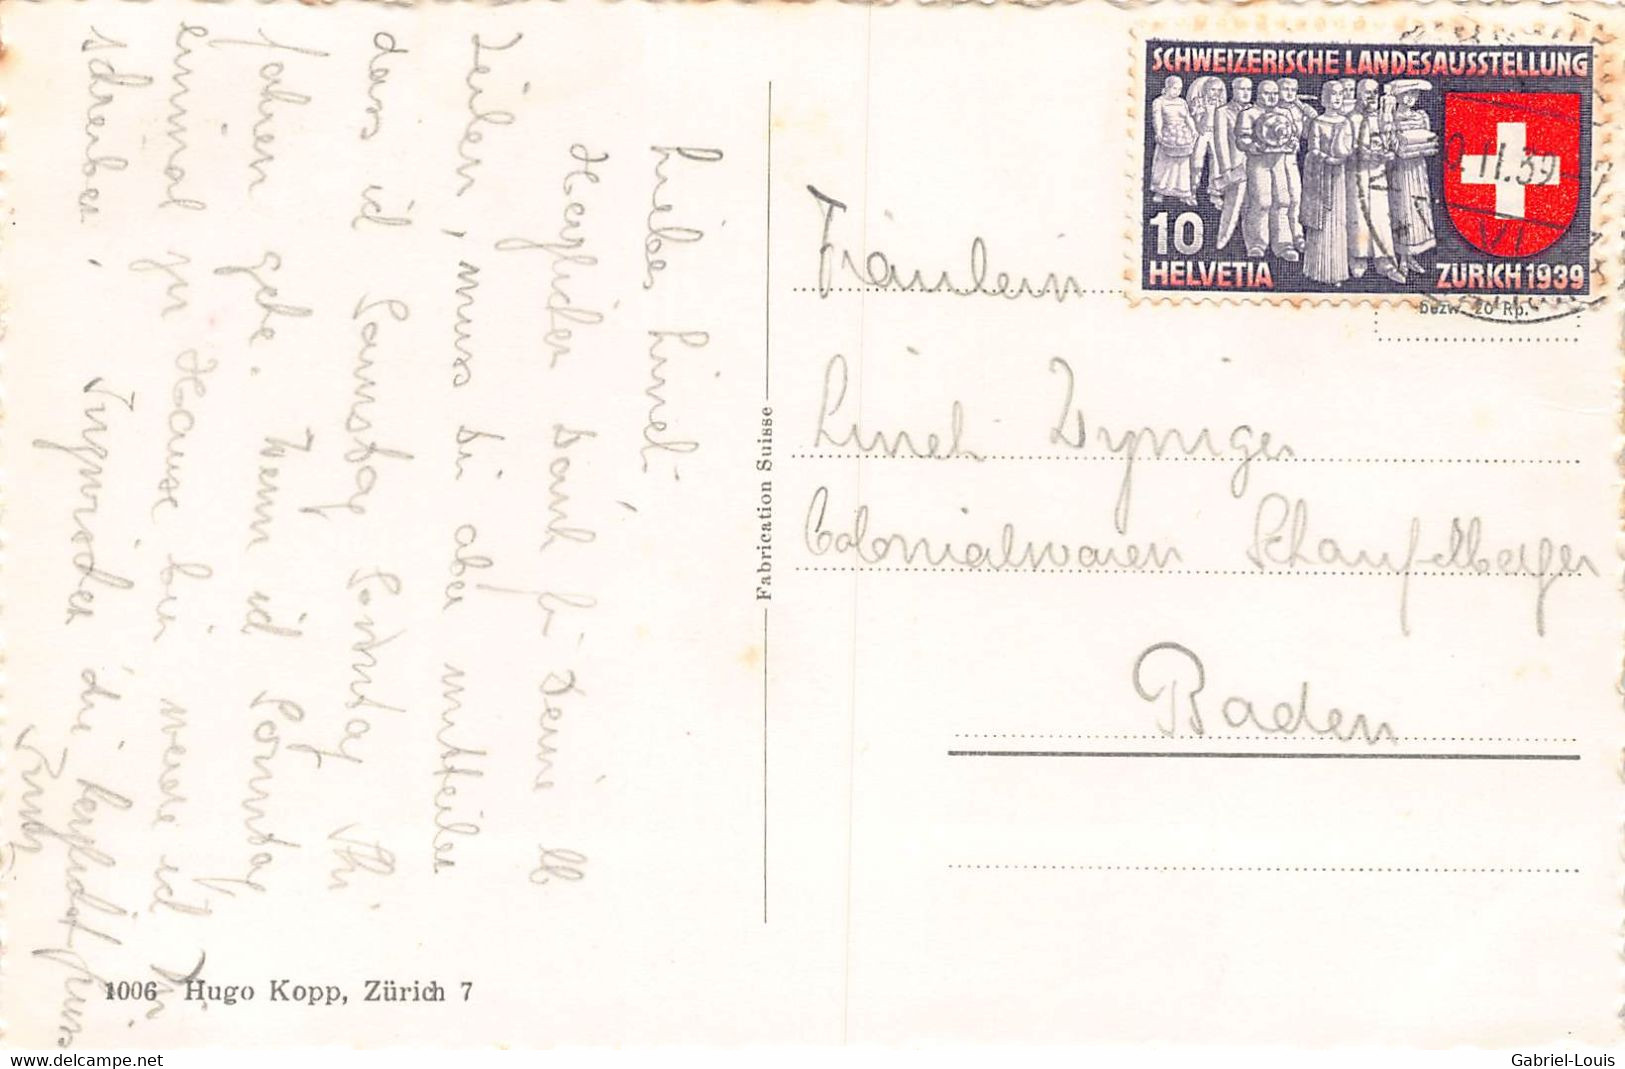 SCHWEIZERISCHE LANDESAUSSTELLUNG
10
HELVETIA
ZÜRICH 1939
II.39
VI
bezw. 20 Rp.
Fräulein
Lineli Wyniger
Colonialwaren Schaufelberger
Baden
Fabrication Suisse
Liebes Lineli,
Herzlichen Dank für Deine lb
Zeilen, muss Dir aber mitteilen
dass ich Samstag Sonntag
fahren gehe. Wenn ich Sonntag
einmal zu Hause bin werde ich Dir
schreiben. Inzwischen die herzlichst
1006 Hugo Kopp, Zürich 7
www.delcampe.net
Gabriel-Louis